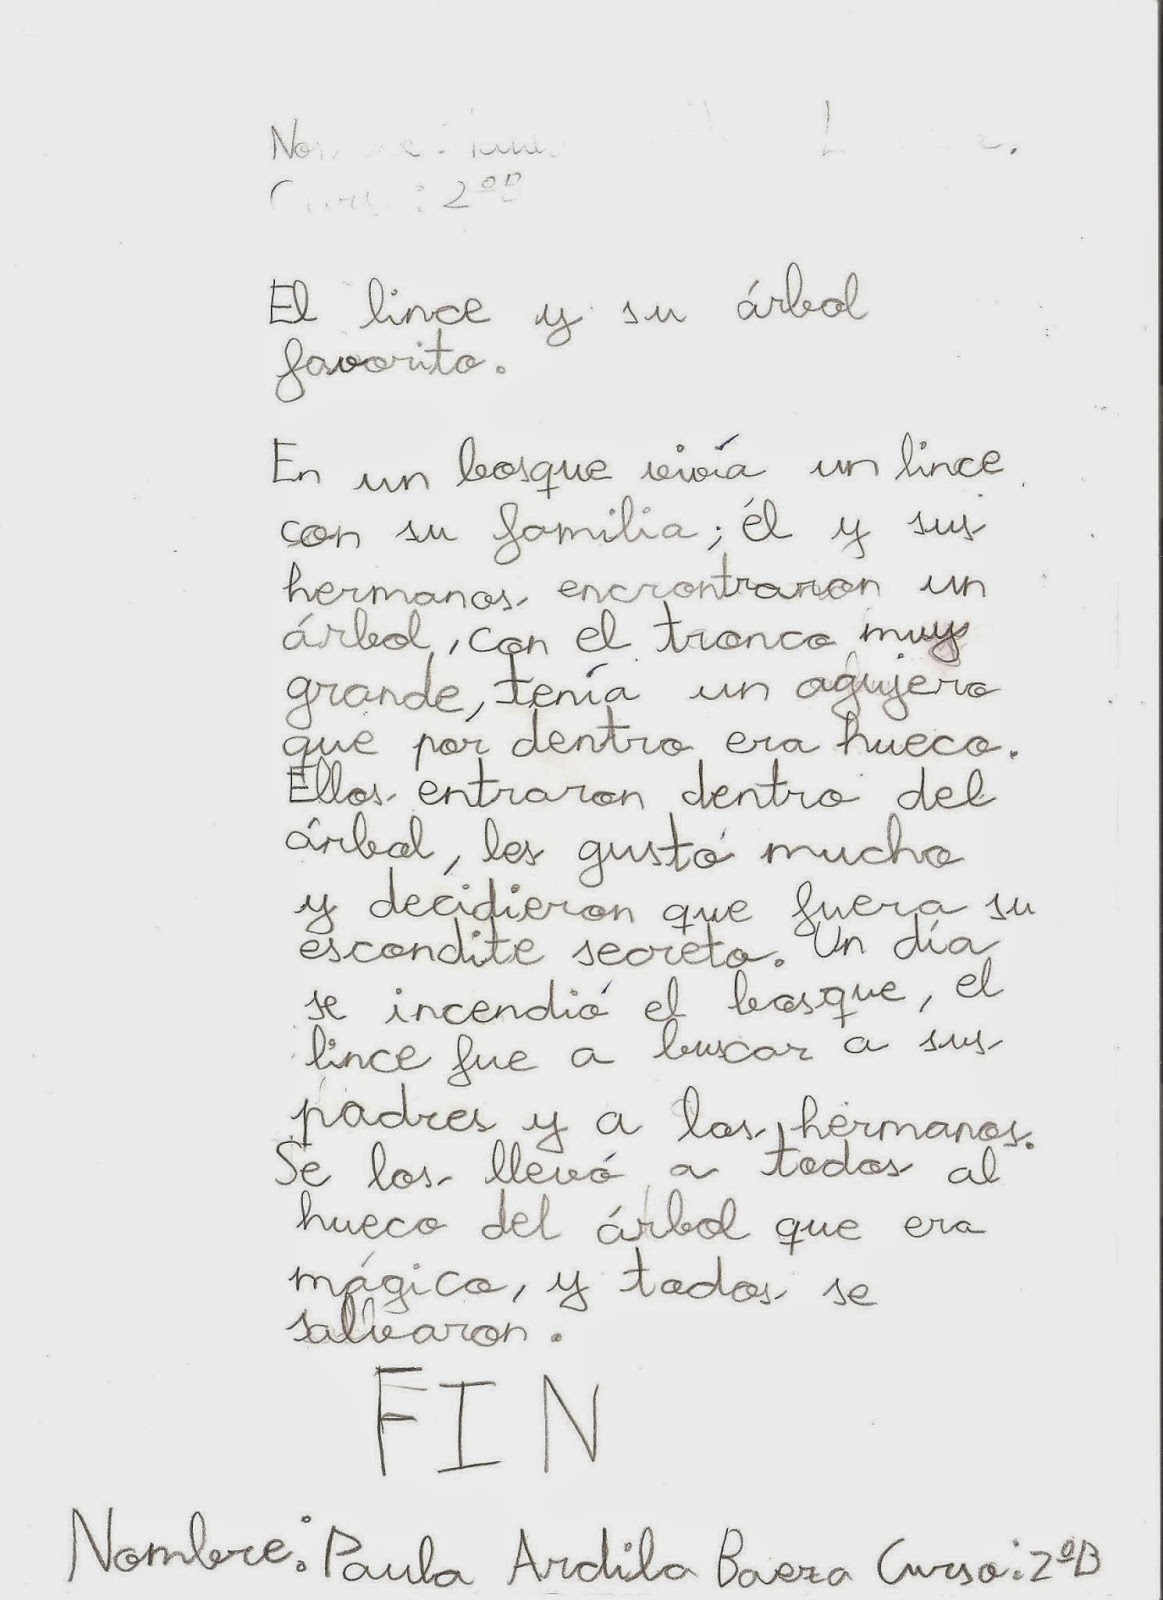 Curso: 2ºB
El lince y su árbol
favorito.
En un bosque vivía un lince
con su familia; él y sus
hermanos encrontraron un
árbol, con el tronco muy
grande, tenía un agujero
que por dentro era hueco.
Ellos entraron dentro del
árbol, les gustó mucho
y decidieron que fuera su
escondite secreto. Un día
se incendió el bosque, el
lince fue a buscar a sus
padres y a los hermanos.
Se los llevó a todos al
hueco del árbol que era
mágico, y todos se
salvaron.
FIN
Nombre: Paula Ardila Baeza Curso: 2ºB